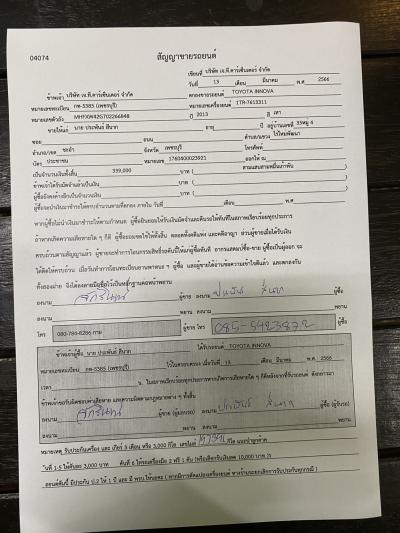 04074
สัญญาขายรถยนต์
เขียนที่ บริษัท เจ.พี.คาร์เซ็นเตอร์ จำกัด
วันที่ 13 เดือน มีนาคม พ.ศ 2566
ข้าพเจ้า บริษัท เจ.พี.คาร์เซ็นเตอร์ จำกัด ตกลงขายรถยนต์ TOYOTA INNOVA
หมายเลขทะเบียน กท-5385 (เพชรบุรี) หมายเลขเครื่องยนต์ 1TR-7613311
หมายเลขตัวถัง MHFXW42G702266848 ปี 2013 สี เทา
ขายให้แก่ นาย ประพันธ์ สีนาก อายุ ปี อยู่บ้านเลขที่ 33หมู่ 4
ซอย ถนน ตำบล/แขวง ไร่ใหม่พัฒนา
อำเภอ/เขต ชะอำ จังหวัด เพชรบุรี โทรศัพท์
บัตร ประชาชน หมายเลข 1760400023921 ออกให้ ณ
เป็นจำนวนเงินทั้งสิ้น 339,000 บาท ( สามแสนสามหมื่นเก้าพัน )
ข้าพเจ้าได้รับมัดจำแล้วเป็นเงิน บาท ( )
ผู้ซื้อยังคงค้างอีกเป็นจำนวนเงิน บาท ( )
ผู้ซื้อจะนำเงินมาชำระให้ครบจำนวนตามที่ตกลง ภายใน วันที่ เดือน พ.ศ
หากผู้ซื้อไม่นำเงินมาชำระให้ตามกำหนด ผู้ซื้อยินยอมให้ริบเงินมัดจำและคืนรถให้ทันทีในสภาพเรียบร้อยทุกประการ
ถ้าหากเกิดความเสียหายใด ๆ ก็ดี ผู้ซื้อยอมชดใช้ให้ทั้งสิ้น ตลอดทั้งคดีแพ่ง และคดีอาญา ส่วนผู้ขายเมื่อได้รับเงิน
ครบถ้วนตามสัญญาแล้ว ผู้ขายจะทำการโอนกรรมสิทธิ์รถคันนี้ให้แก่ผู้ซื้อทันที
ลงนาม ผู้ขาย ลงนาม ประพันธ์ สีนาก ผู้ซื้อ
ลงนาม พยาน ลงนาม พยาน
โทร 080-784-8266 กาม ผู้ขาย โทร 085-5423872 ผู้ซื้อ
ข้าพเจ้าผู้ซื้อ นาย ประพันธ์ สีนาก ได้รับรถยนต์ TOYOTA INNOVA
หมายเลขทะเบียน กท-5385 (เพชรบุรี) ไว้ในครอบครอง เมื่อวันที่ 13 เดือน มีนาคม พ.ศ 2566
เวลา น. ในสภาพเรียบร้อยทุกประการ
ลงนาม ผู้ขาย (ผู้มอบรถ) ลงนาม ประพันธ์ สีนาก ผู้ซื้อ (ผู้รับรถ)
ลงนาม พยาน ลงนาม พยาน
หมายเหตุ รับประกันเครื่อง และ เกียร์ 3 เดือน หรือ 3,000 กิโล